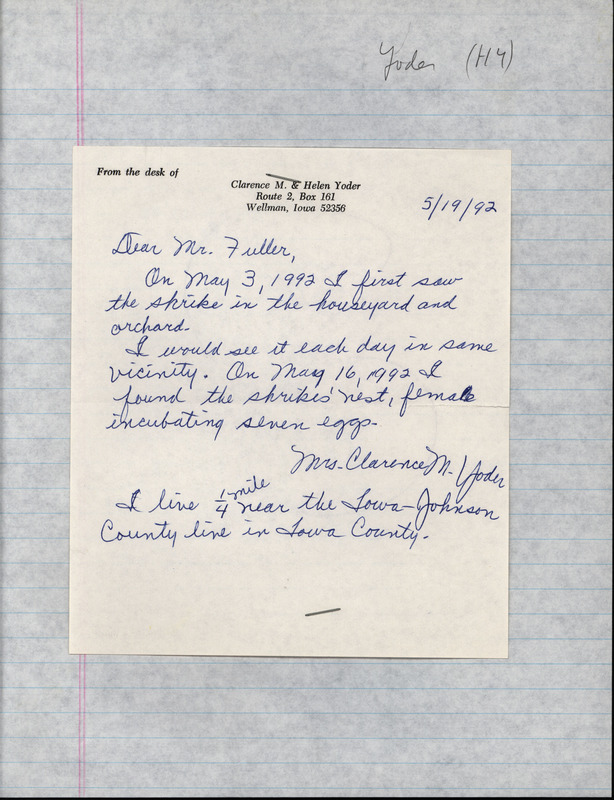 Yoder (HY)
From the desk of
Clarence M. & Helen Yoder
Route 2, Box 161
Wellman, Iowa 52356
5/19/92
Dear Mr. Fuller,
On May 3, 1992 I first saw
the shrike in the houseyard and
orchard.
I would see it each day in same
vicinity. On May 16, 1992 I
found the shrikes' nest, female
incubating seven eggs.
Mrs. Clarence M. Yoder
I live 1/4 mile near the Iowa-Johnson
County line in Iowa County.